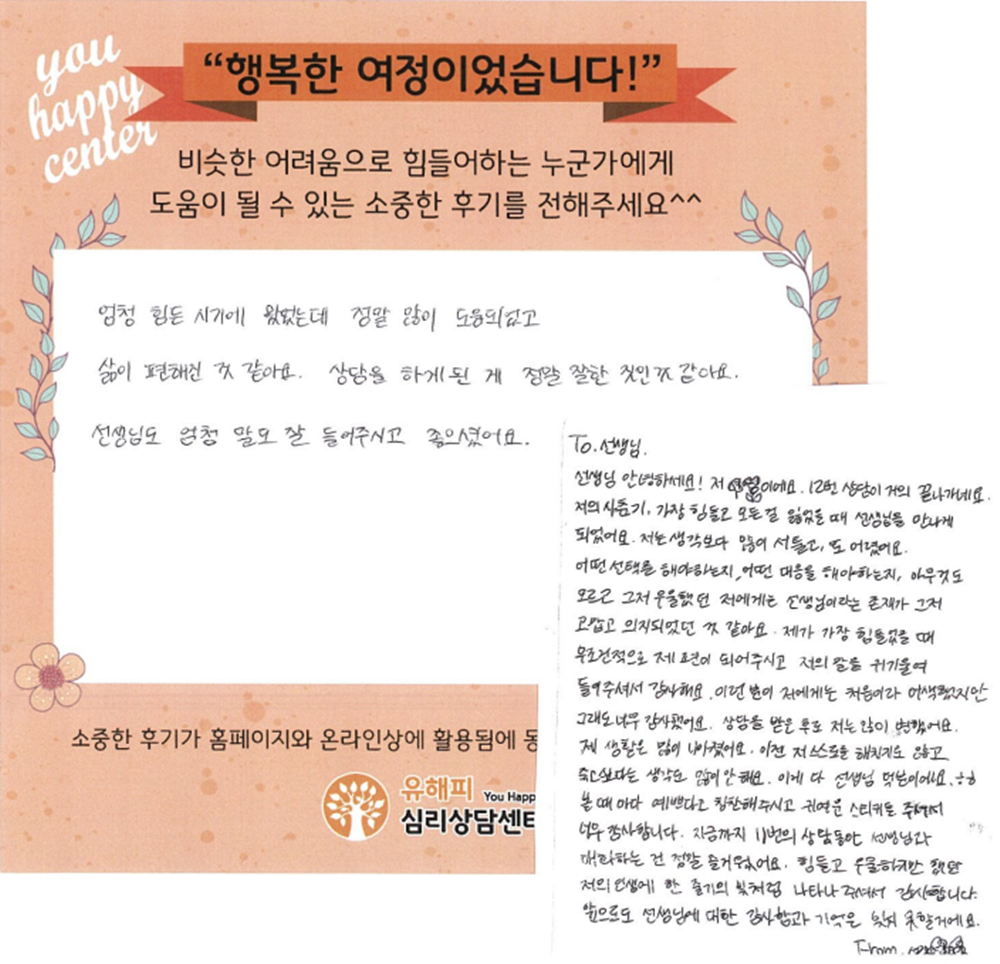 you
happy
center
“행복한 여정이었습니다!”
비슷한 어려움으로 힘들어하는 누군가에게
도움이 될 수 있는 소중한 후기를 전해주세요^^
엄청 힘든 시기에 왔었는데 정말 많이 도움되었고
삶이 편해진 것 같아요. 상담을 하게 된 게 정말 잘한 짓인 것 같아요.
선생님도 엄청 말도 잘 들어주시고 좋으셨어요.
To. 선생님.
선생님 안녕하세요! 저 이에요. 12번 상담이 거의 끝나가네요.
저의 사춘기, 가장 힘들고 모든걸 잃었을 때 선생님을 만나게
되었어요. 저는 생각보다 많이 서툴고, 또 어렸어요.
어떤 선택을 해야하는지, 어떤 대응을 해야하는지, 아무것도
모르고 그저 우울했던 저에게는 선생님이라는 존재가 그저
고맙고 의지되었던 것 같아요. 제가 가장 힘들었을 때
무조건적으로 제 편이 되어주시고 저의 말을 귀기울여
들어주셔서 감사해요. 이런 법이 저에게는 처음이라 어색했지만
그래도 너무 감사했어요. 상담을 받은 후로 저는 많이 변했어요.
제 생활은 많이 나아졌어요. 이전 저 스스로를 해친지도 않고
죽고싶다는 생각도 많이 안 해요. 이게 다 선생님 덕분이에요. ㅎㅎ
볼 때 마다 예쁘다고 칭찬해주시고 귀여운 스티커도 주셔서
너무 감사합니다. 지금까지 11번의 상담동안 선생님과
대화하는 건 정말 즐거웠어요. 힘들고 우울하지만 했던
저의 인생에 한 줄기의 빛처럼 나타나 주셔서 감사합니다.
앞으로도 선생님에 대한 감사함과 기억은 잊지 못할거에요.
From.
소중한 후기가 홈페이지와 온라인상에 활용됨에 동
유해피 You Happ
심리상담센터